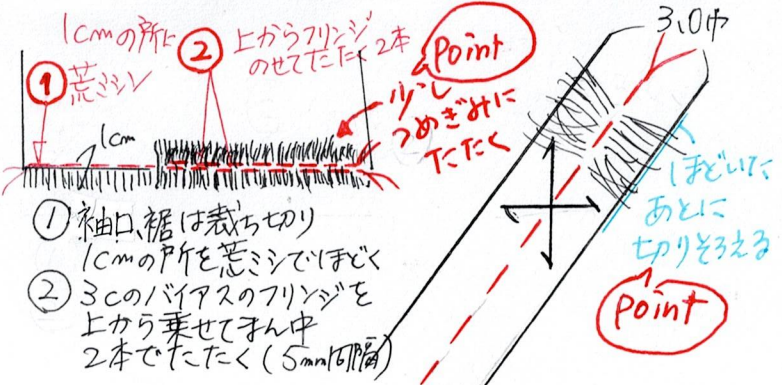 1cmの所に
① 荒ミシン
② 上からフリンジ
のせてたたく2本
point
少し
つめぎみに
たたく
1cm
3.0巾
ほどいた
あとに
切りそろえる
point
① 袖口、裾は裁ち切り
1cmの所を荒ミシでほどく
② 3cのバイアスのフリンジを
上から乗せてまん中
2本でたたく(5mm間隔)